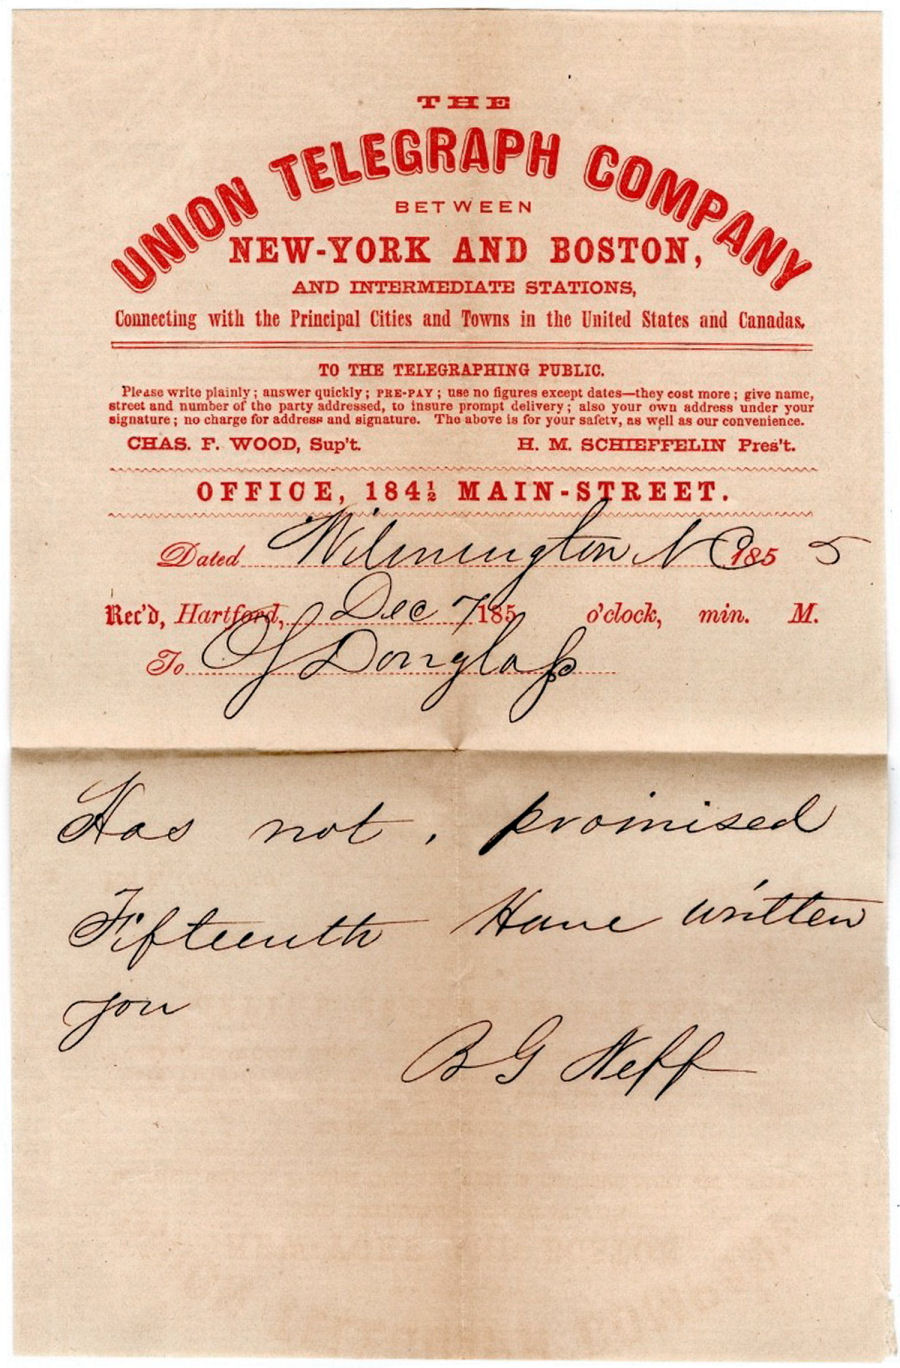 THE
UNION TELEGRAPH COMPANY
BETWEEN
NEW-YORK AND BOSTON,
AND INTERMEDIATE STATIONS,
Connecting with the Principal Cities and Towns in the United States and Canadas.
TO THE TELEGRAPHING PUBLIC.
Please write plainly; answer quickly; PRE-PAY; use no figures except dates—they cost more; give name,
street and number of the party addressed, to insure prompt delivery; also your own address under your
signature; no charge for address and signature. The above is for your safety, as well as our convenience.
CHAS. F. WOOD, Sup't. H. M. SCHIEFFELIN Pres't.
OFFICE, 184½ MAIN-STREET.
Dated Wilmington N C 185 5
Rec'd, Hartford, Dec 7 185 o'clock, min. M.
To Douglass
Has not. promised
Fifteenth Have written
you
B G Neff